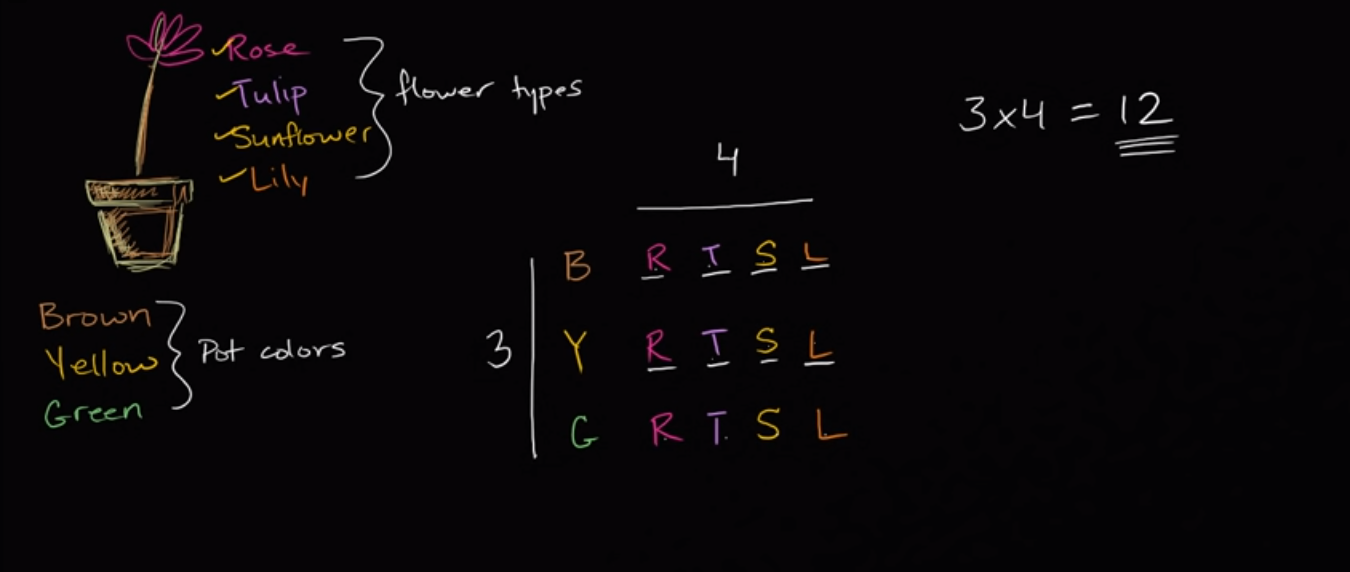 Rose
Tulip
Sunflower
Lily
flower types
3x4 = 12
4
Brown
Yellow
Green
Pot colors
3
B R T S L
Y R T S L
G R T S L